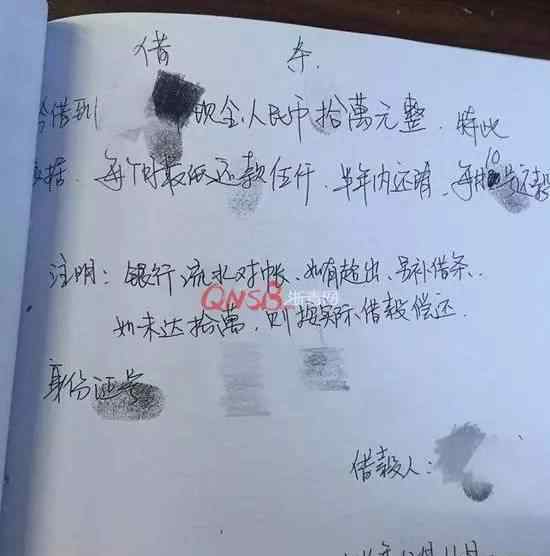 借 条.
今借到 现金人民币拾萬元整. 特此
立据. 每个月最低还款伍仟. 半年内还清, 每月10号还款
注明: 银行流水对帐、如有超出、另补借条、
QNSB 浙青网
如未达拾萬, 则按实际借款偿还.
身份证号
借款人:
年 月11日